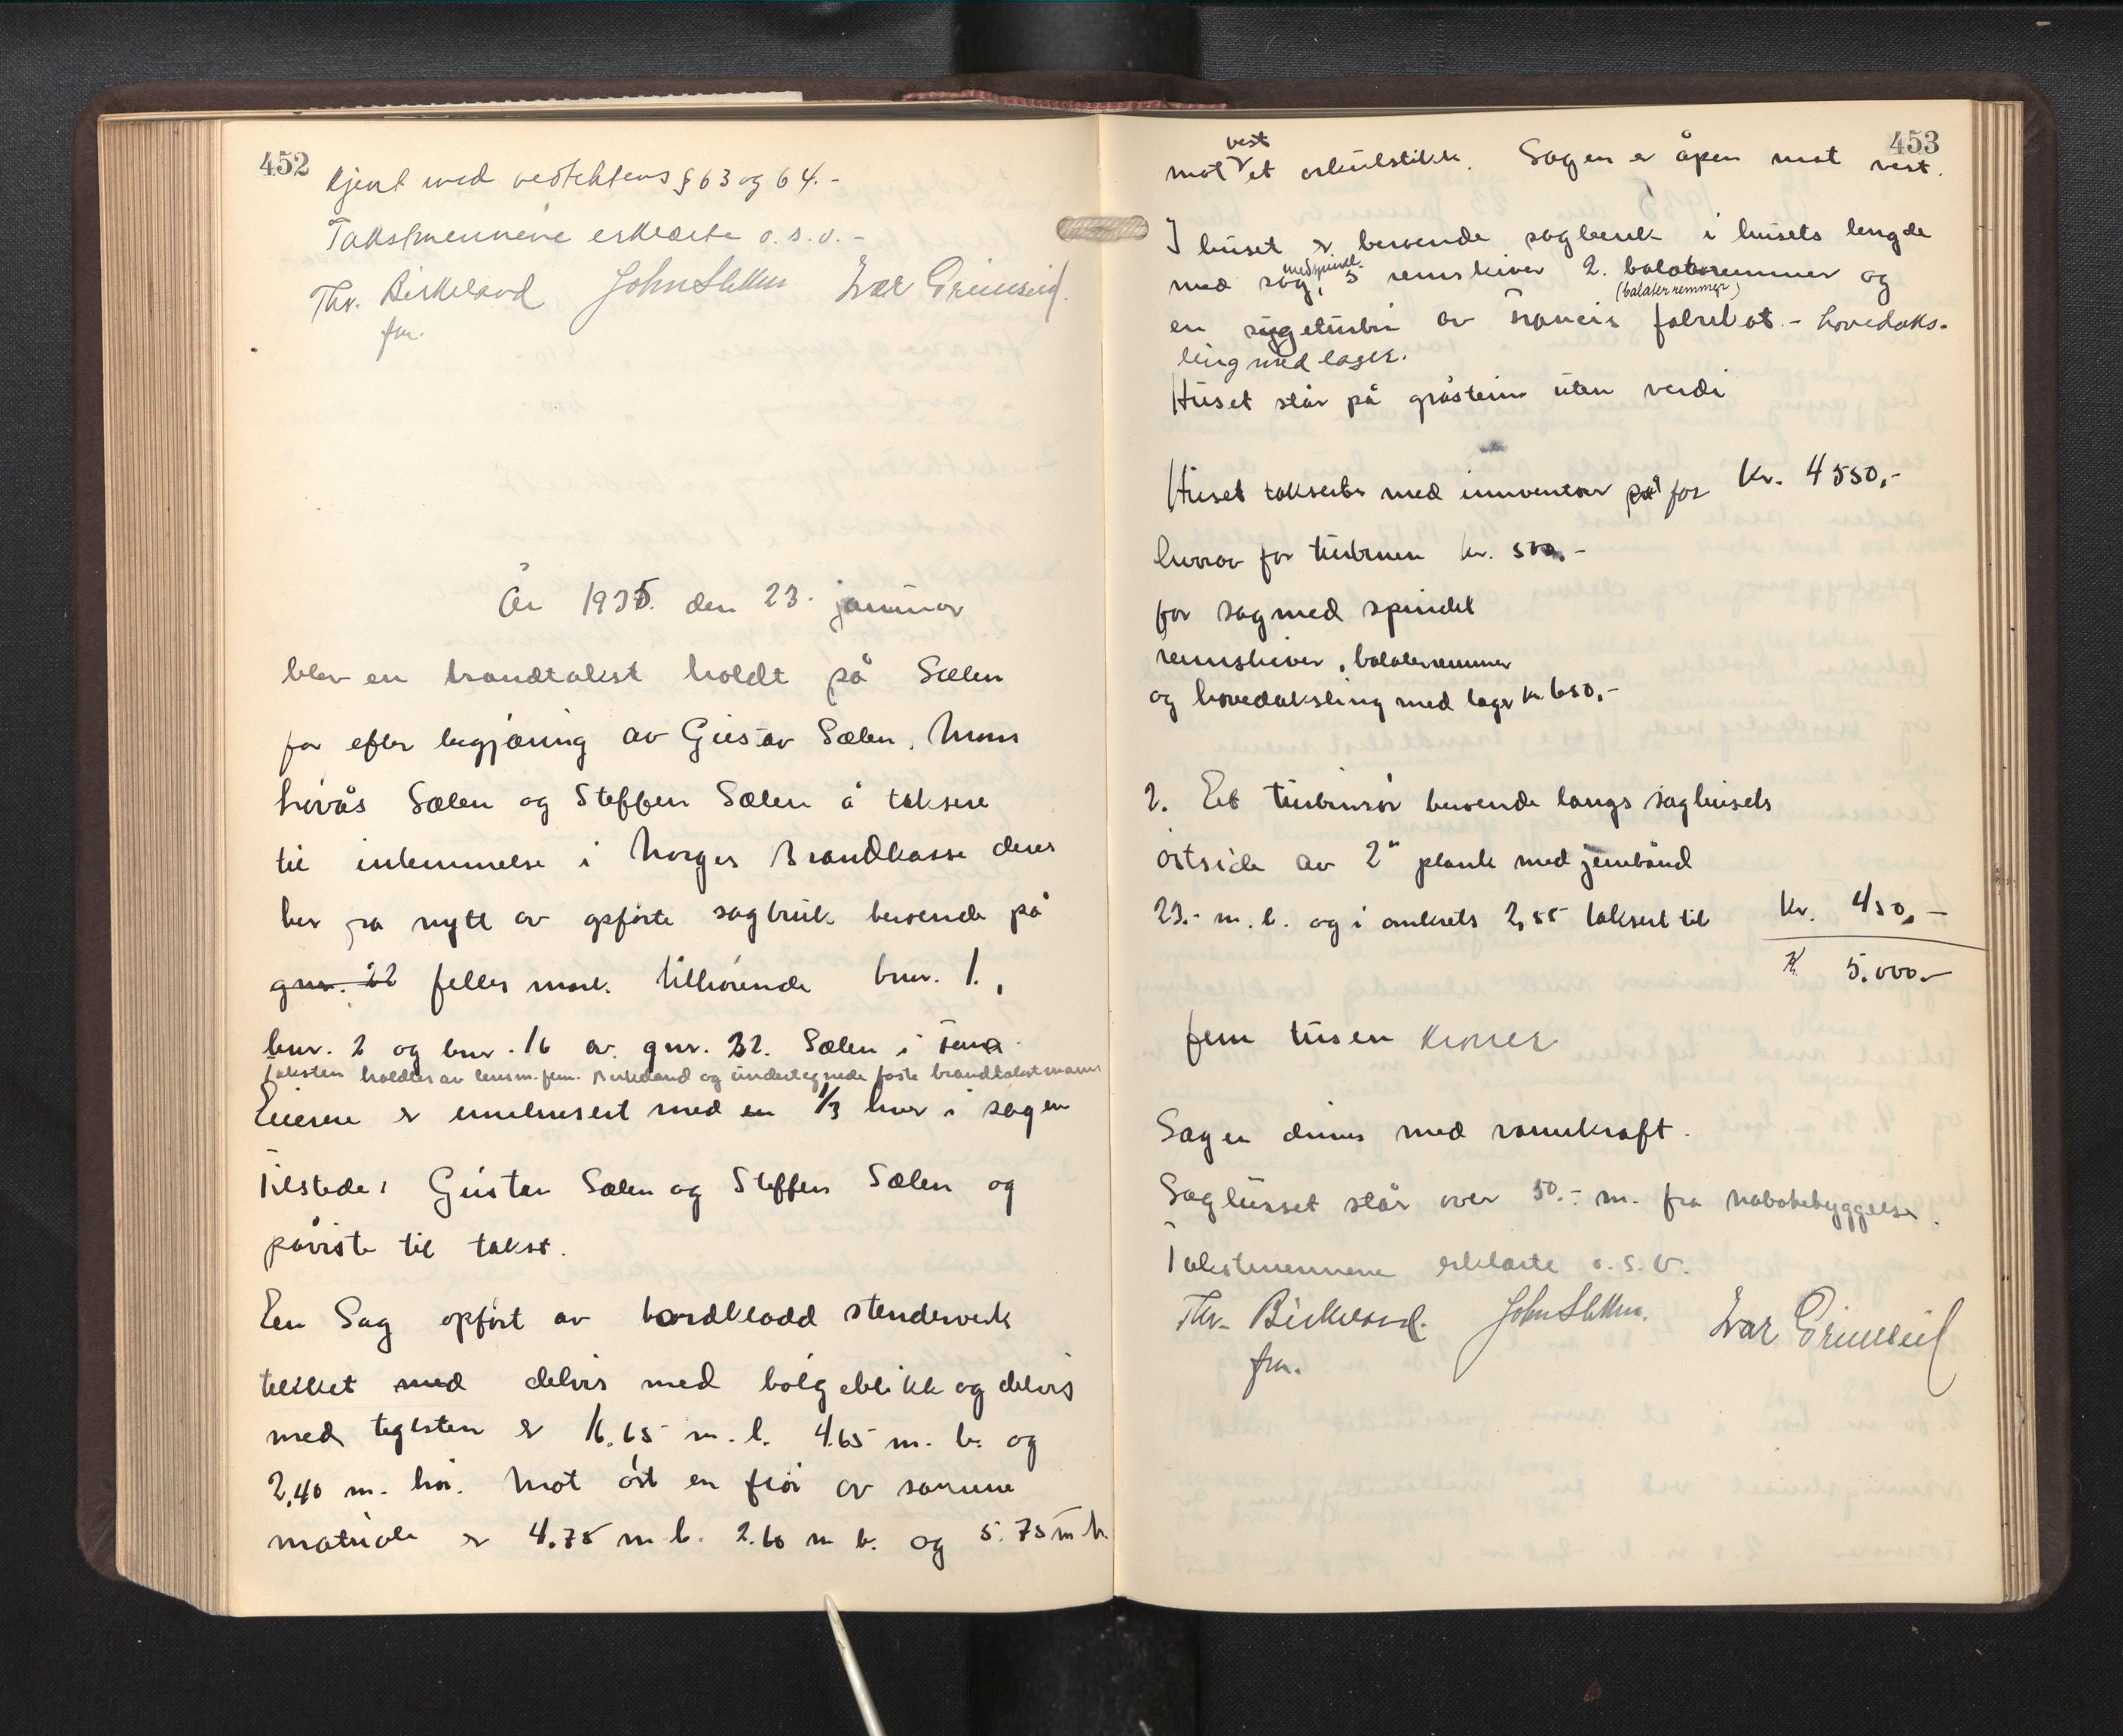 452
kjent med vedtektens § 63 og 64.-
Takstmennene erklærte o.s.v.-
Thr. Birkeland John Ivar Grimseid.
fm.
År 1935. den 23. januar
blev en brandtakst holdt på Sælen
for efter begjæring av Gustav Sælen, Mons
Sælen og Steffen Sælen å taksere
til innlemmelse i Norges Brandkasse deres
her på nytt av opførte sagbruk beroende på
gnr. 22 felles mark tilhørende bnr. 1.,
bnr. 2 og bnr. 16 av gnr. 22. Sælen i
Taksten holdtes av lensm. fm. Birkeland og undertegnede faste brandtakstmenn
Eierene er med en 1/3 hver i sagen
Tilstede: Gustav Sælen og Steffen Sælen og
påviste til takst.
En Sag opført av bordkledd stenderverk
tekket med delvis med bølgeblikk og delvis
med teglsten er 16.65 m. l. 4.65 m. b. og
2,40 m. høi. Mot øst en fløi av samme
matriale er 4.75 m l. 2.60 m b. og 5.75 m h
453
vest
mot et Sagen er åpen mot vest.
I huset er beroende sagbenk i husets lengde
med spindel
med sag, 5 remskiver 2. balataremmer og
(balataremmer)
en sugeturbin av Francis fabrikat. - hovedaks-
ling med lager.
Huset står på gråstein uten verdi
Huset takseres med innventar på for Kr. 4550,-
hvorav for turbinen kr. 500.-
for sag med spindel
remskiver, balataremmer
og hovedaksling med lager kr 650,-
2. Eet turbinrør beroende langs saghusets
østside av 2" plank med jernbånd
23.- m. l. og i omkrets 2,55 taksert til Kr. 450,-
Kr 5.000.-
fem tusen kroner
Sagen drives med vannkraft.
Saghusset står over 50.- m. fra nabobebyggelse.
Takstmennene erklærte o.s.v.
Thr. Birkeland. John Ivar Grimseid
fm.